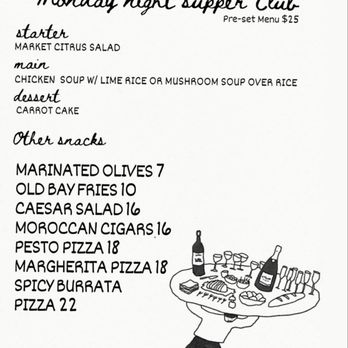 Monday night supper Club
Pre-set Menu $25
starter
MARKET CITRUS SALAD
main
CHICKEN SOUP W/ LIME RICE OR MUSHROOM SOUP OVER RICE
dessert
CARROT CAKE
Other snacks
MARINATED OLIVES 7
OLD BAY FRIES 10
CAESAR SALAD 16
MOROCCAN CIGARS 16
PESTO PIZZA 18
MARGHERITA PIZZA 18
SPICY BURRATA
PIZZA 22